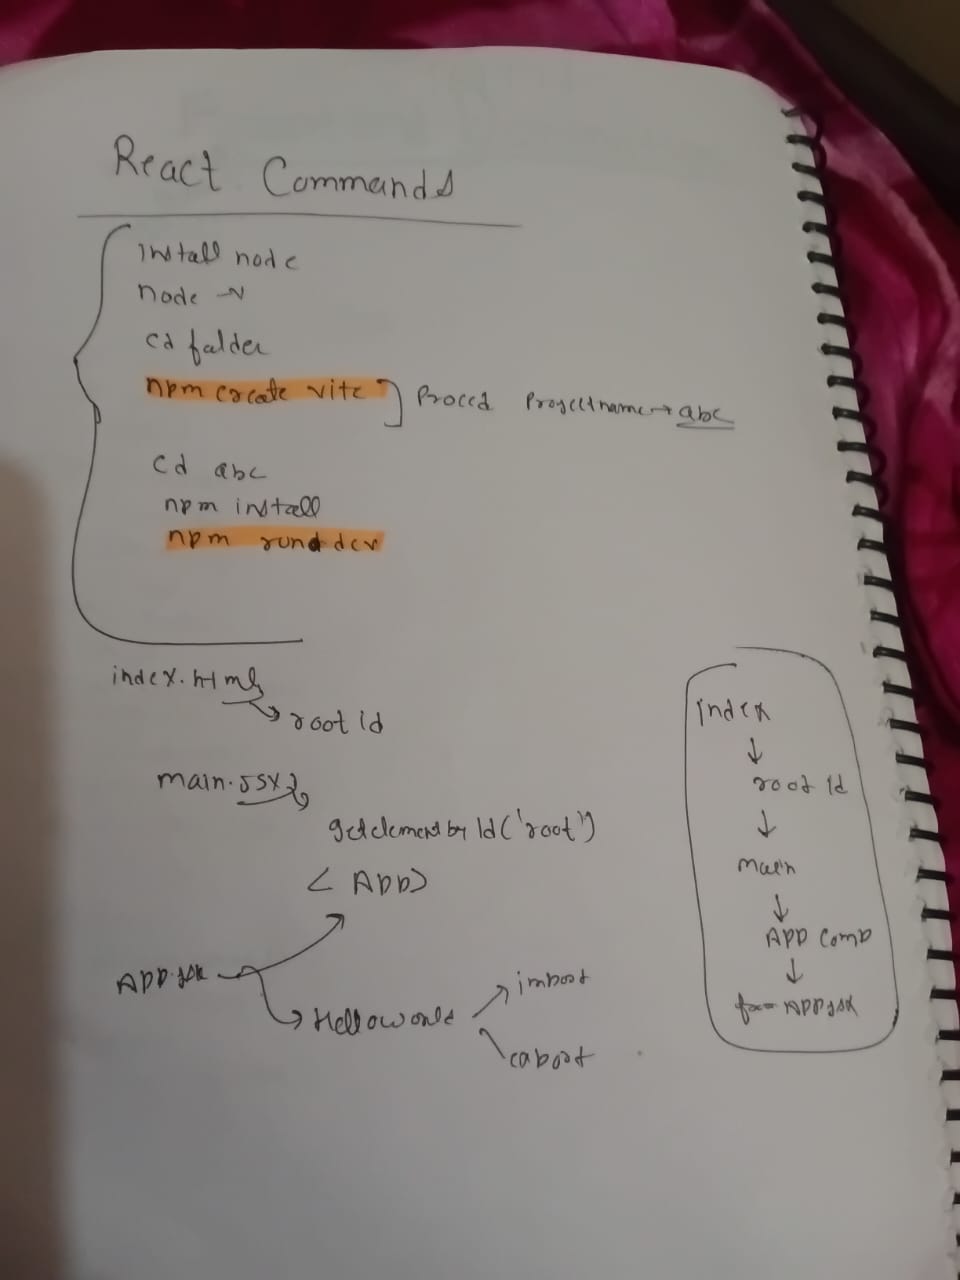 React Commands
install node
node -v
cd folder
npm create vite ] Proced Projectname → abc
cd abc
npm install
npm run dev
index.html
→ root id
main.JSX
getelement by Id('root')
< App>
APP.jsx
Helloworld
import
export
index
↓
root id
↓
main
↓
APP Comp
↓
APPjsx